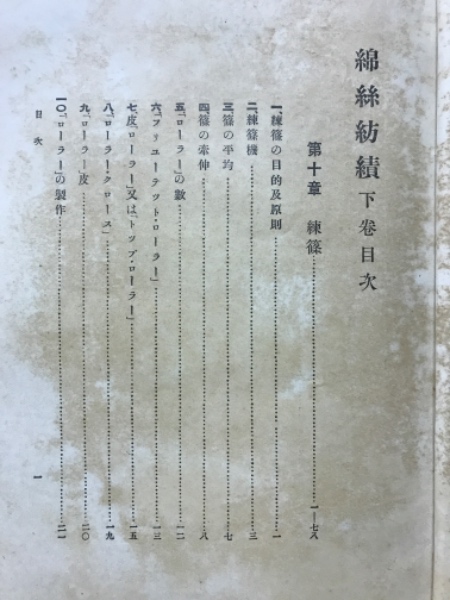 綿絲紡績 下卷目次
第十章 練篠……一—七八
一、練篠の目的及原則……一
二、練篠機……三
三、篠の平均……七
四、篠の牽伸……八
五、「ローラー」の數……一二
六、「フリューテット・ローラー」……一三
七、皮「ローラー」又は「トップ・ローラー」……一五
八、「ローラー・クロース」……一九
九、「ローラー」皮……二〇
一〇、「ローラー」の製作……二一
目次
一